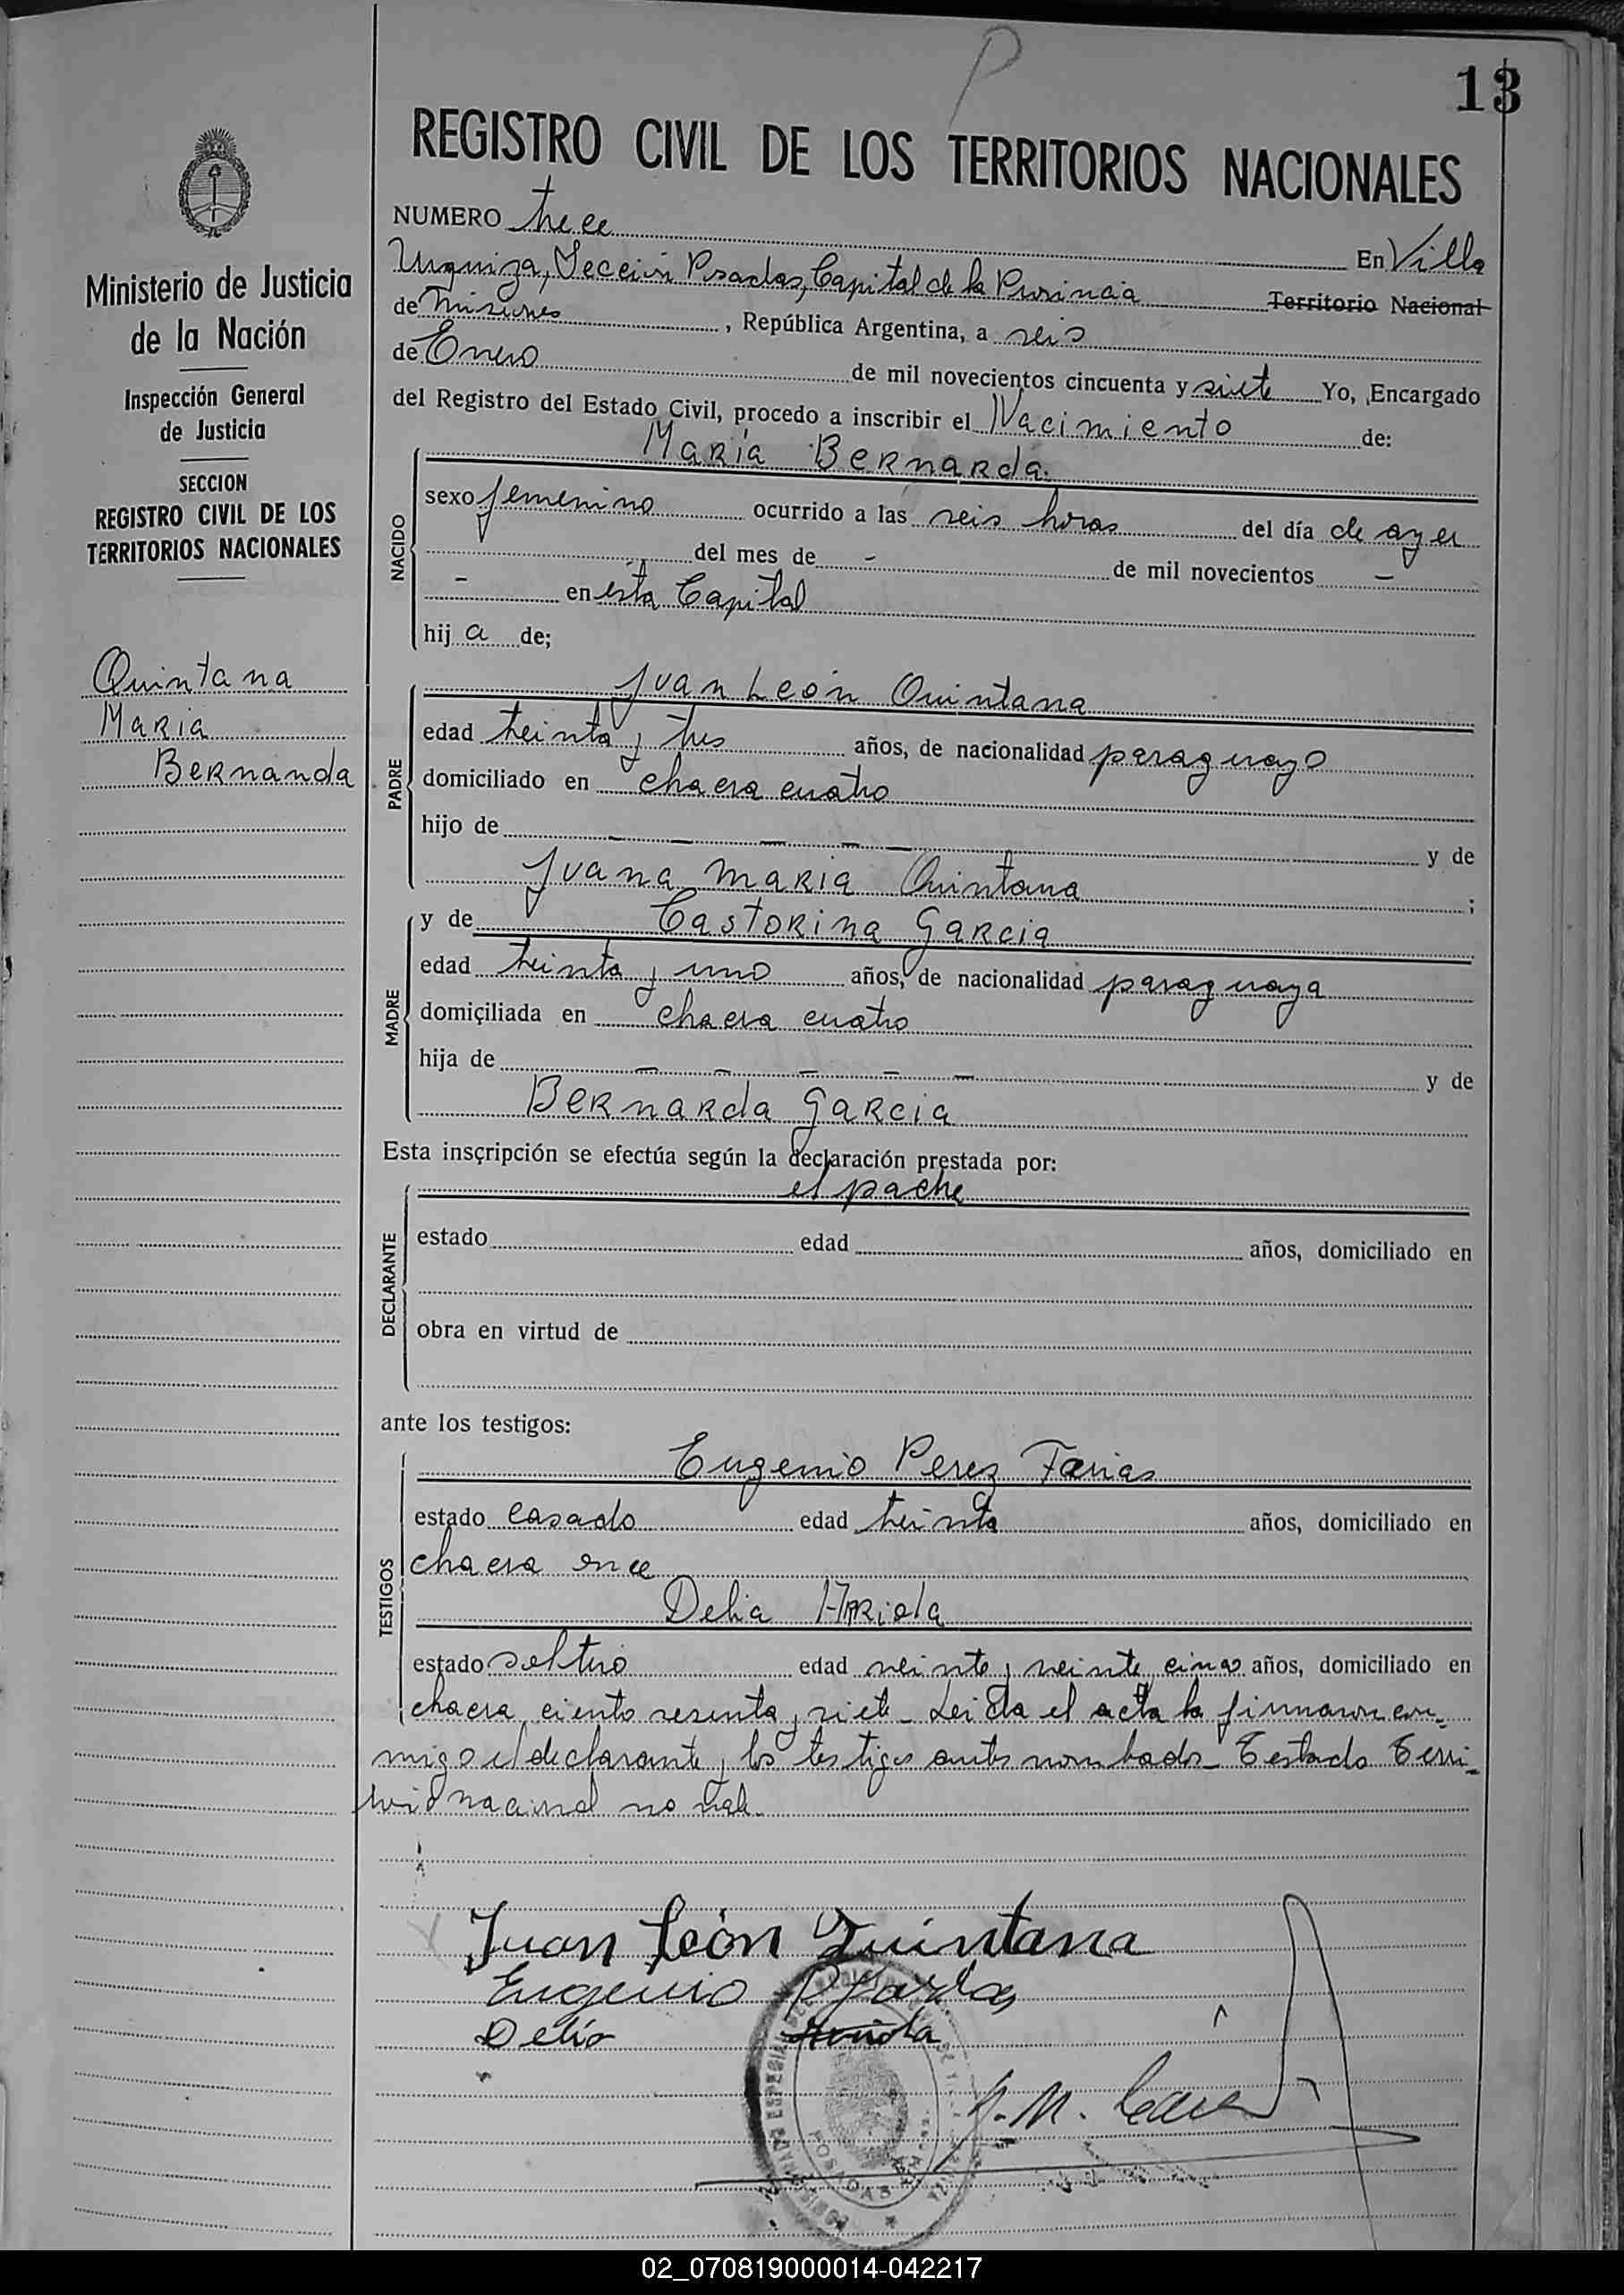 P
13
REGISTRO CIVIL DE LOS TERRITORIOS NACIONALES
Ministerio de Justicia
de la Nación
Inspección General
de Justicia
SECCION
REGISTRO CIVIL DE LOS
TERRITORIOS NACIONALES
Quintana
Maria
Bernarda
NUMERO trece En Villa
Urquiza, Sección Posadas, Capital de la Provincia Territorio Nacional
de Misiones, República Argentina, a seis
de Enero de mil novecientos cincuenta y siete Yo, Encargado
del Registro del Estado Civil, procedo a inscribir el Nacimiento de:
María Bernarda.
NACIDO
sexo femenino ocurrido a las seis horas del día de ayer
del mes de - de mil novecientos -
- en esta Capital
hij a de;
PADRE
Juan León Quintana
edad treinta y tres años, de nacionalidad paraguayo
domiciliado en chacra cuatro
hijo de - - - - y de
Juana Maria Quintana ;
MADRE
y de Castorina Garcia
edad treinta y uno años, de nacionalidad paraguaya
domiciliada en chacra cuatro
hija de - - - - - y de
Bernarda Garcia
Esta inscripción se efectúa según la declaración prestada por:
DECLARANTE
el padre
estado edad años, domiciliado en
obra en virtud de
ante los testigos:
TESTIGOS
Eugenio Perez Farias
estado casado edad treinta años, domiciliado en
chacra once
Delia Arriola
estado soltero edad veinte y veinte cinco años, domiciliado en
chacra ciento sesenta y siete - Leida el acta la firmaron con-
migo el declarante y los testigos antes nombrados - Testado Terri-
torio nacional no vale.
Juan León Quintana
Eugenio P Farias
Delia Arriola
POSADAS
02_070819000014-042217